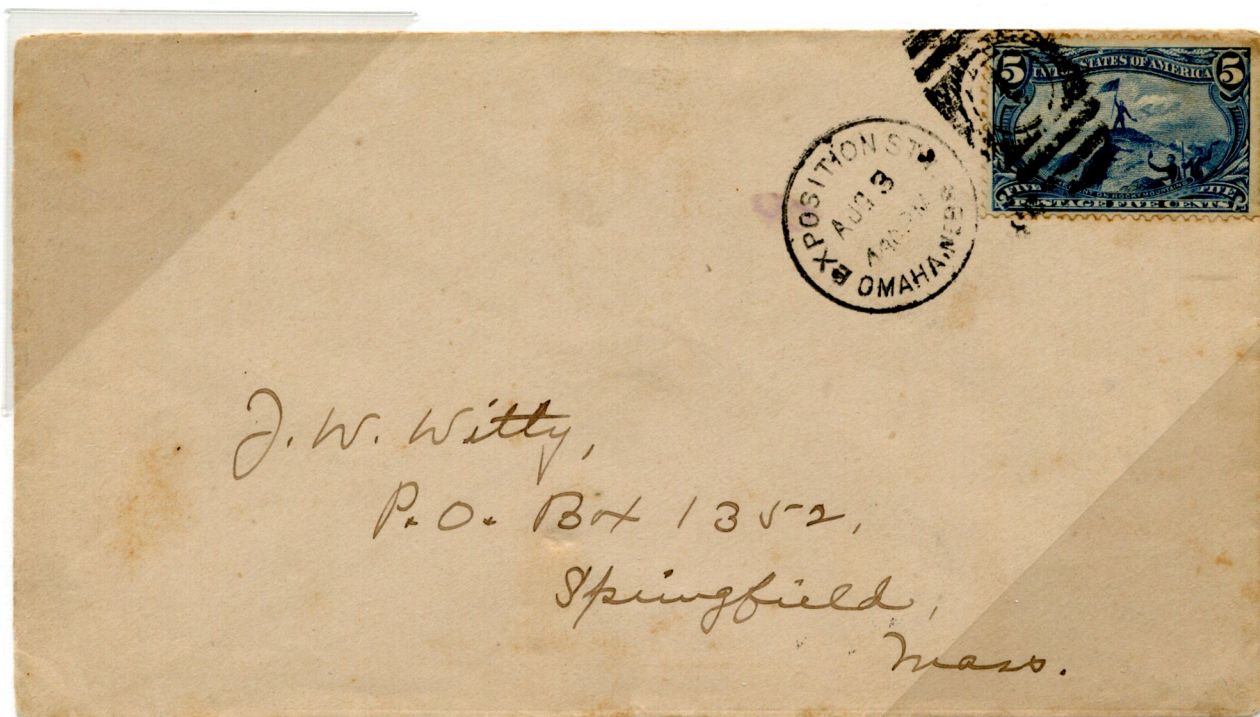 5 UNITED STATES OF AMERICA 5
FIVE FIVE
POSTAGE FIVE CENTS
EXPOSITION STA.
AUG 3
OMAHA, NEB.
J. W. Witty,
P.O. Box 1352,
Springfield,
Mass.